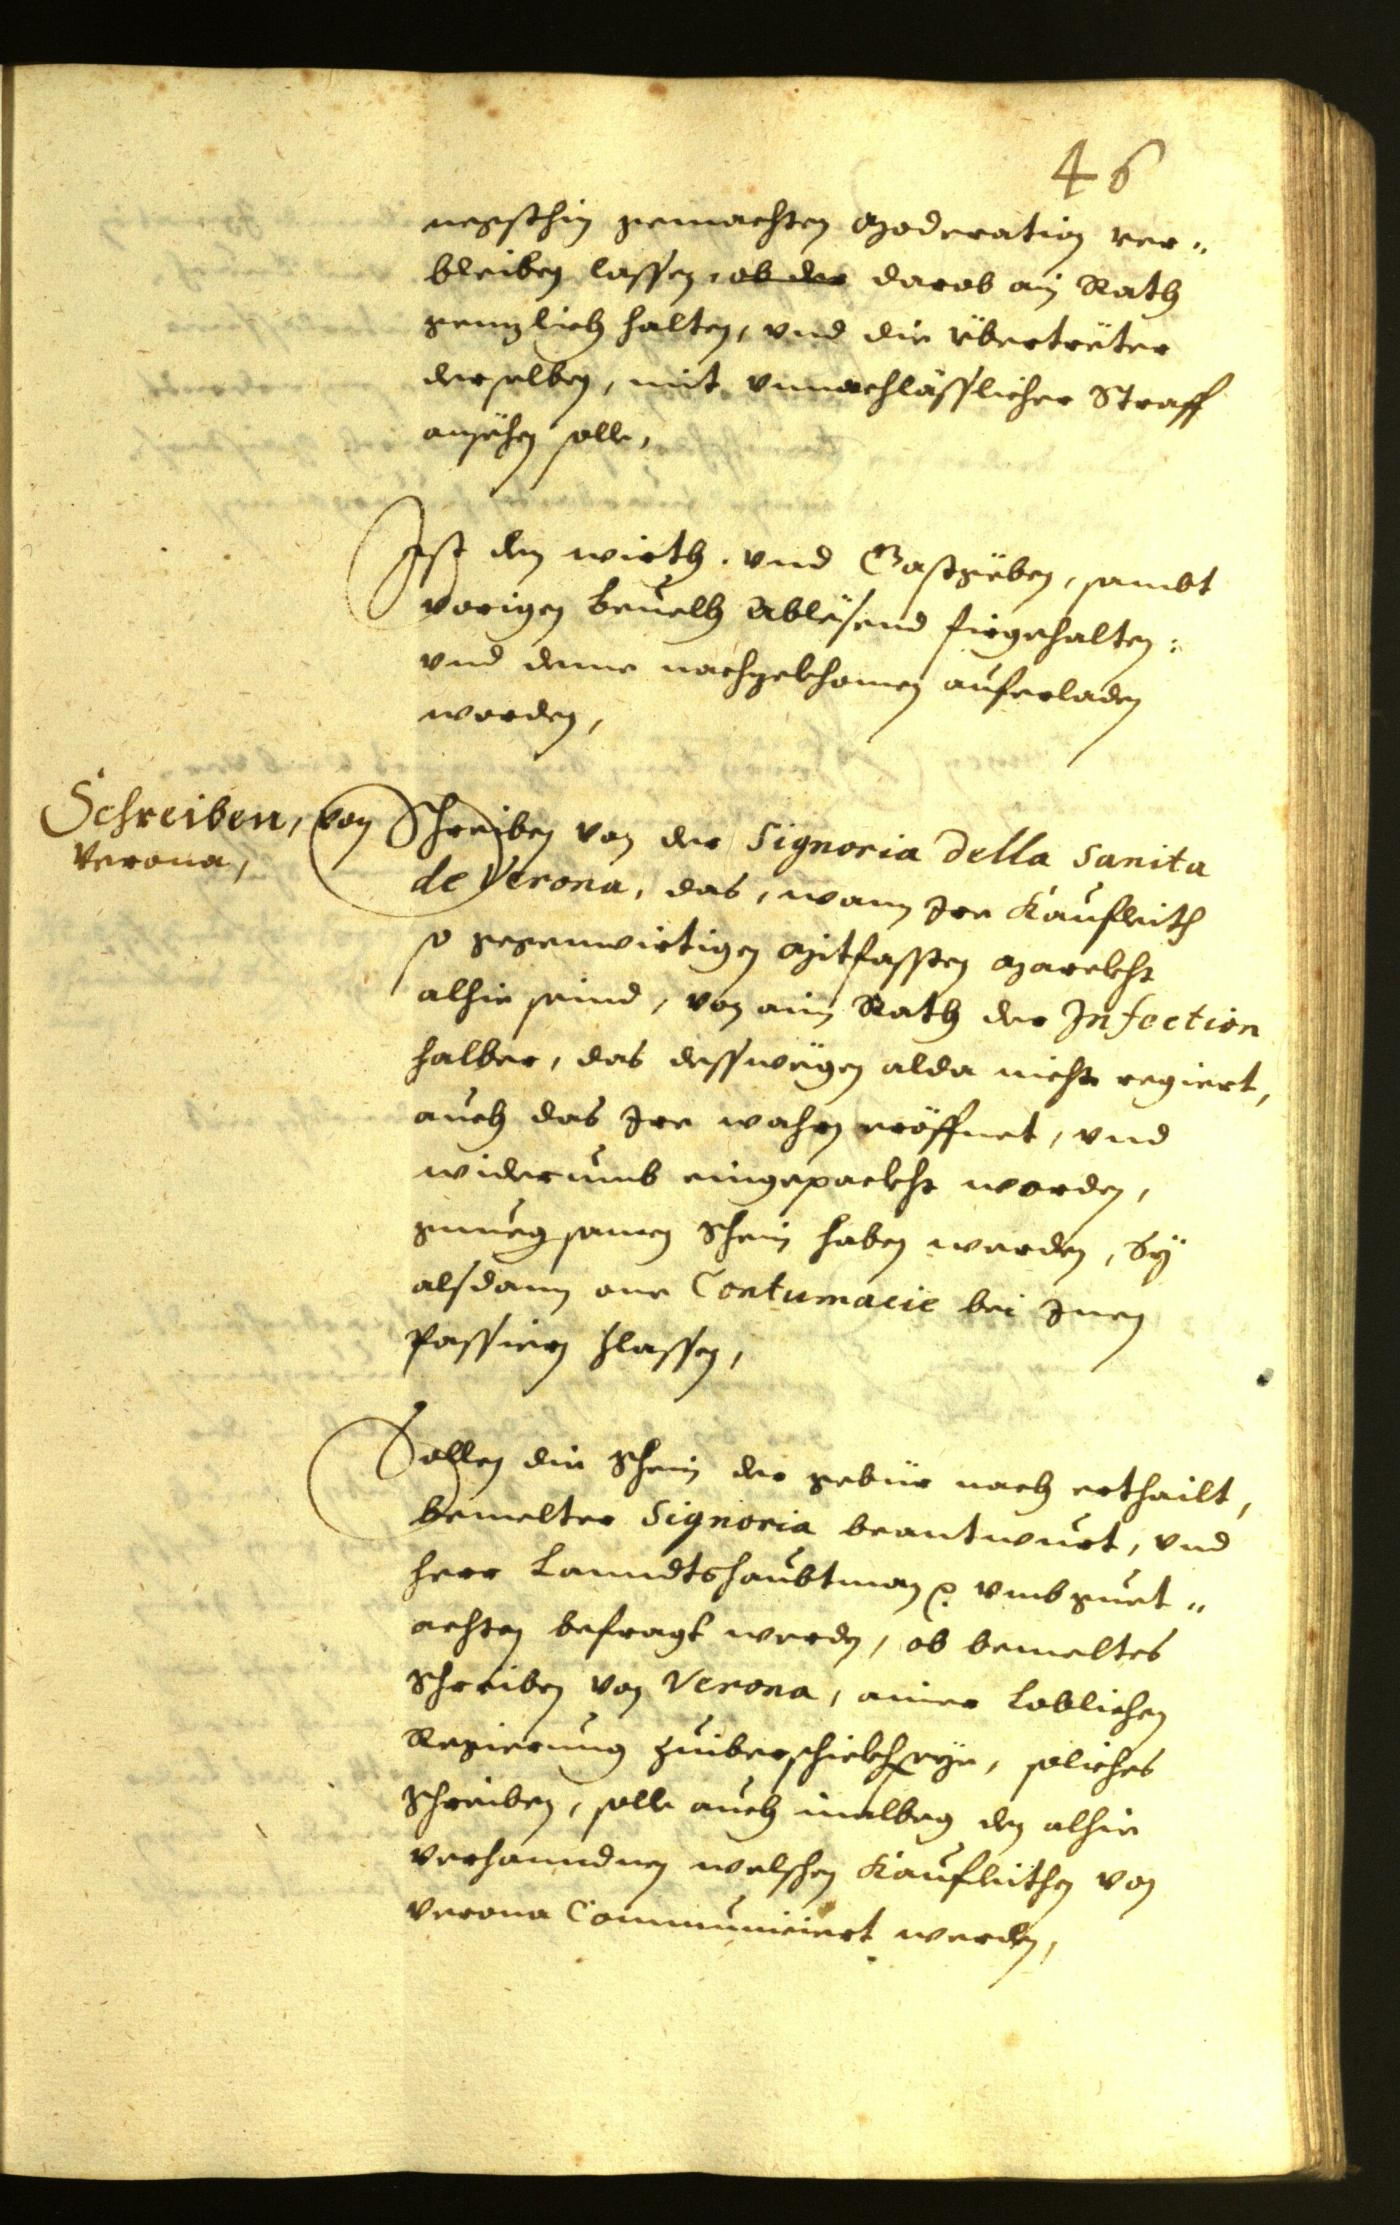 46
negsthin gemachten Moderation ver¬
bleiben lassen, ob der darob ain Rath
genzlich halten, vnd die Vbertreter
derselben, mit vnnachlässlicher Straff
ansehen solle,
Ist den wirth vnd Gastgëben, sambt
vorigen beuelh Ablesend firgehalten:
vnd deme nachzekhomen auferladen
worden,
Schreiben, von
Verona,
Schreiben von der Signoria della Sanita
de Verona, das, wann Ire Kaufleith
so gegenwirtigen Mitfassten Marckht
alhie seind, von ain Rath der Infection
halber, das desswegen alda nicht regiert,
auch das Ire wahrn eröffnet, vnd
widerumb eingepackht worden,
gnuegsamen Schein haben werden, Sy
alsdann one Contumacie bei Inen
Passiern zlassen,
Sollen die Schein der gebür nach erthailt,
bemelter Signoria beantwurt, vnd
herr Lanndtshaubtman vmb guet¬
achten befragt werden, ob bemeltes
Schreiben von Verona, ainer Loblichen
Regierung zuiberschickhen seye, soliches
Schreiben, solle auch den alhie
verhanndnen welschen Kaufleithen von
Verona Communiciert werden,